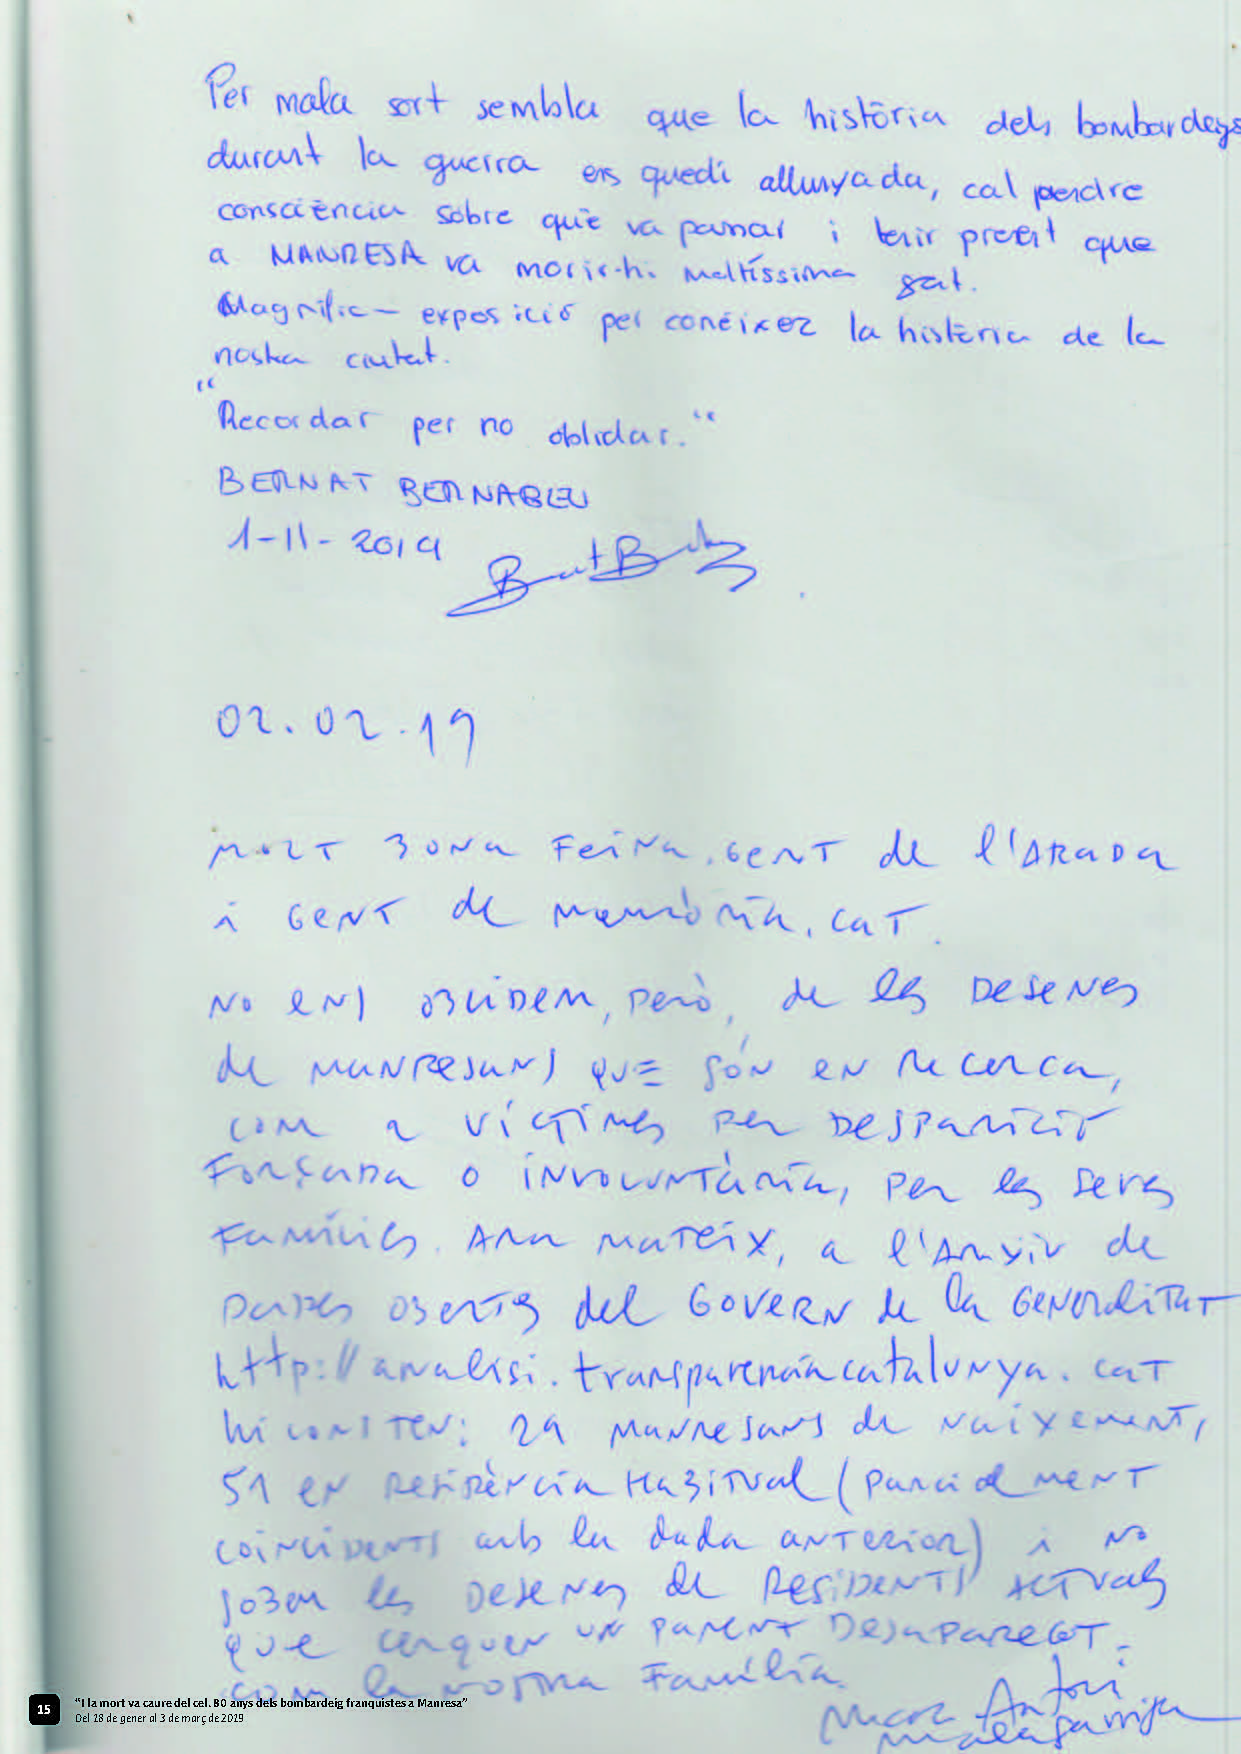 Per mala sort sembla que la història dels bombardeigs
durant la guerra ens quedi allunyada, cal pendre
consciència sobre què va passar i tenir present que
a MANRESA va morir-hi moltíssima gent.
Magnífic- exposició per conèixer la història de la
nostra ciutat.
"
Recordar per no oblidar."
BERNAT BERNABEU
1-II-2019
02.02.19
MOLT BONA FeiNa, GENT de l'ARADA
i GENT de memòria.caT.
No eNS OBLIDEM, però, de les DeseNes
de MaNResaNS que són eN Recerca,
com a víctimes per DESPARICIÓ
Forçada o iNvoluNTària, per les seves
Famílies. Ara maTeix, a l'Arxiv de
Dades obertes del GoverN de la GeNeraliTaT
http://analisi.transparenciacatalunya.caT
hi consTeN: 29 maNresaNs de naixemeNT,
51 eN Residència HabiTual (parcialmeNT
coincideNTs amb la dada aNTerior) i No
pocs les DeseNes de ResideNTs acTuals
que cerqueN uN pareNT DesapareguT.
com la nosTra Família.
Marc Antoni
Malagarriga
15
"I la mort va caure del cel. 80 anys dels bombardeig franquistes a Manresa"
Del 18 de gener al 3 de març de 2019